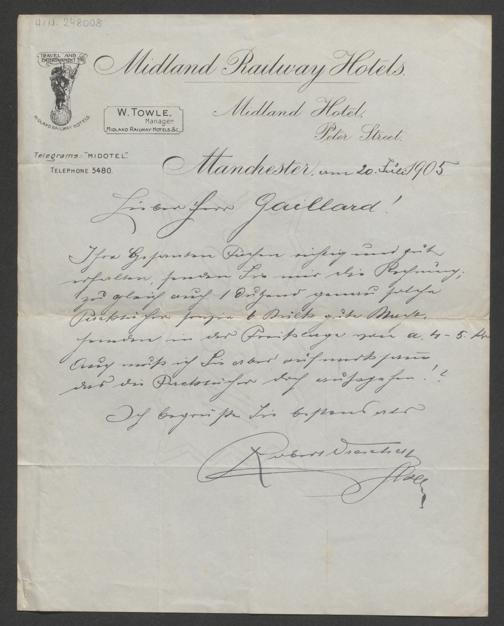 I.N. 248008
TRAVEL AND ENTERTAINMENT
MIDLAND RAILWAY HOTELS
Midland Railway Hotels.
W. TOWLE,
Manager
MIDLAND RAILWAY HOTELS &c.
Midland Hotel,
Peter Street.
Telegrams: "MIDOTEL"
TELEPHONE 5480.
Manchester, am 20. Juli 1905
Lieber Herr Gaillard!
Ihre Gesanten Sachen richtig und gut
erhalten, senden Sie mir die Rechnung;
zu gleich auch 1 Dutzend genau solche
sowie 6 Stück gute
in der Preislage von a. 4-5
Auch muß ich Sie aber aufmerksam
das die doch !!
Ich begrüße Sie bestens als
Robert